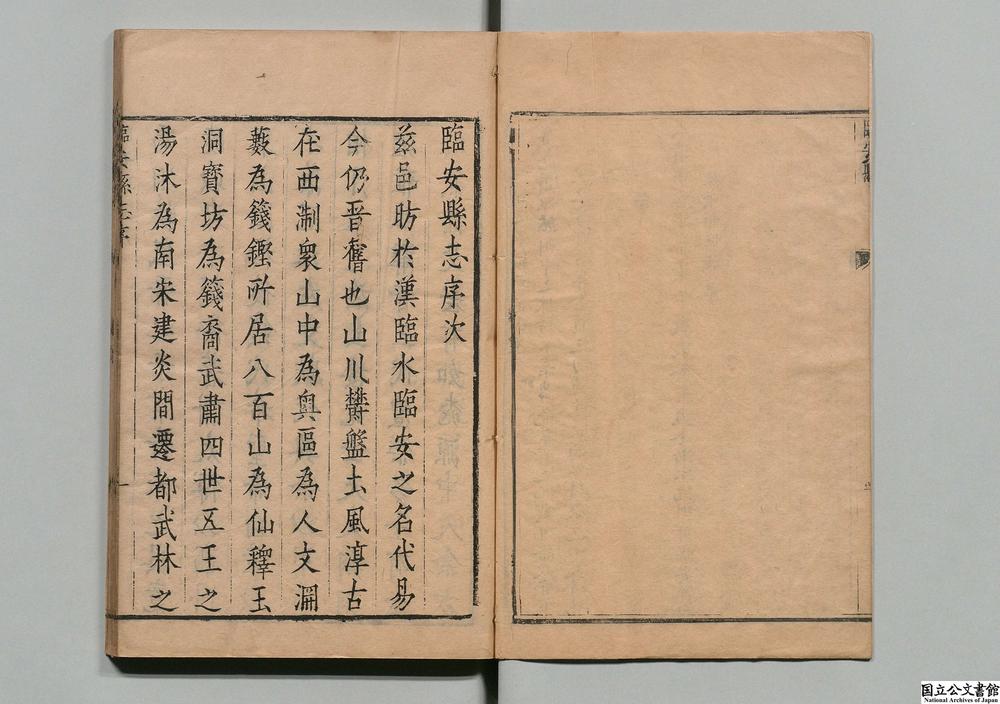 臨安縣志序次
茲邑昉於漢臨水臨安之名代易
今仍晉舊也山川欝盤土風淳古
在西淛衆山中為奧區為人文淵
藪為籛鏗所居八百山為仙釋玉
洞寶坊為籛裔武肅四世五王之
湯沐為南宋建炎間遷都武林之
臨安縣志序
一
国立公文書館
National Archives of Japan